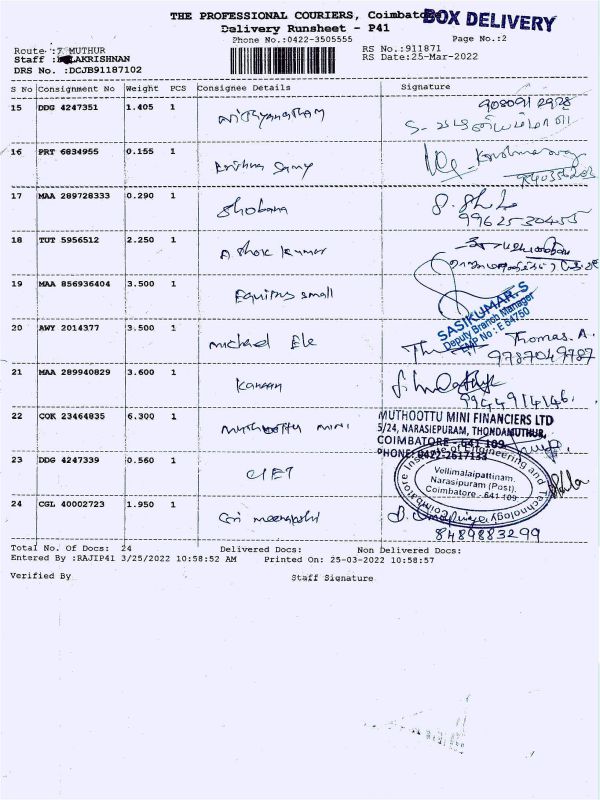 THE PROFESSIONAL COURIERS, Coimbatore
BOX DELIVERY
Delivery Runsheet - P41
Phone No.:0422-3505555
Page No.:2
Route :7 MUTHUR
RS No.:911871
Staff : LAKRISHNAN
RS Date:25-Mar-2022
DRS No. :DCJB91187102
S No Consignment No Weight PCS Consignee Details Signature
15 DDG 4247351 1.405 1
16 PRT 6834955 0.155 1 Krishna Samy
17 MAA 289728333 0.290 1 Shobana
9962530455
18 TUT 5956512 2.250 1 Ashok Kumar
19 MAA 856936404 3.500 1 Equitas small
SASIKUMAR. S
Deputy Branch Manager
EMP No : E 54750
20 AWY 2014377 3.500 1 Michael Ele Thomas. A.
9787049787
21 MAA 289940829 3.600 1 Kannan
9944914146.
22 COK 23464835 6.300 1 Muthoottu mini
MUTHOOTTU MINI FINANCIERS LTD
5/24, NARASIEPURAM, THONDAMUTHUR,
COIMBATORE - 641 109
PHONE: 0422-2617133
23 DDG 4247339 0.560 1 CIET
Coimbatore Institute of Engineering and Technology
Vellimalaipattinam,
Narasipuram (Post),
Coimbatore - 641 109
24 CGL 40002723 1.950 1 Sri meenakshi
8489883299
Total No. Of Docs: 24 Delivered Docs: Non Delivered Docs:
Entered By :RAJIP41 3/25/2022 10:58:52 AM Printed On: 25-03-2022 10:58:57
Verified By Staff Signature